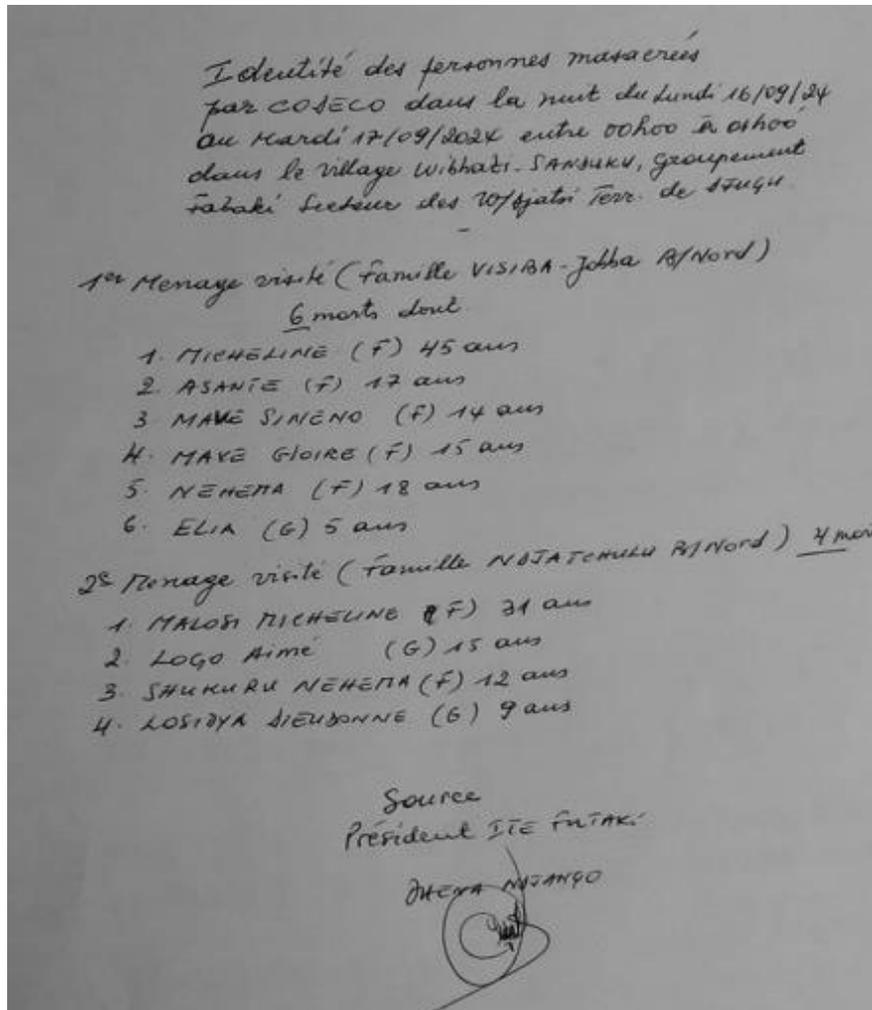 Identité des personnes masacrées
par CODECO dans la nuit du Lundi 16/09/24
au Mardi 17/09/2024 entre 00h00 à 01h00
dans le village Wibhazi-SANDUKU, groupement
Fataki Secteur des W/Djatsi Terr. de DJUGU
1er Menage visité (Famille VISIBA-Jobba R/Nord)
6 morts dont
1. MICHELINE (F) 45 ans
2. ASANTE (F) 17 ans
3 MAVE SINENO (F) 14 ans
4. MAVE GlOIRE (F) 15 ans
5. NEHEMA (F) 18 ans
6. ELIA (G) 5 ans
2e Menage visité (Famille NDJATCHULU R/Nord) 4 mor
1. MALOSI MICHELINE (F) 31 ans
2. LOGO Aimé (G) 15 ans
3. SHUKURU NEHEMA (F) 12 ans
4. LOSIDYA DIEUDONNE (G) 9 ans
Source
Président FATAKI
NDJANGO